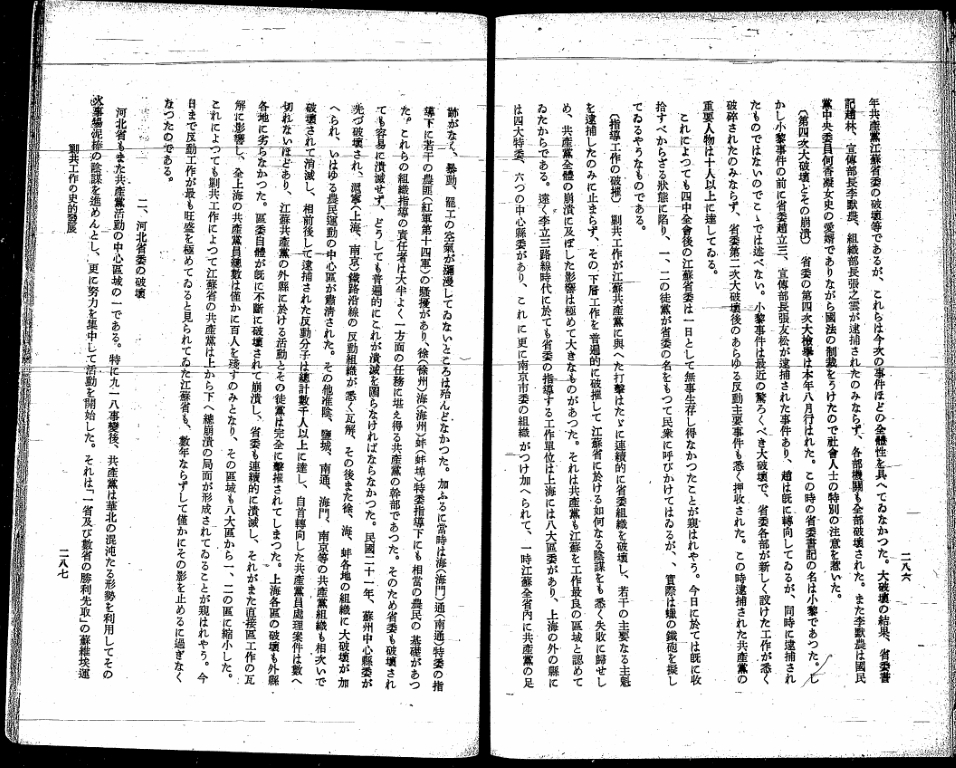 二八六
年共產黨江蘇省委の破壞等であるが、これらは今次の事件ほどの全體性を具へてゐなかつた。大破壞の結果、省委書
記趙林、宣傳部長李獻農、組織部長張之雲が逮捕されたのみならず、各部機關も全部破壞された。また李獻農は國民
黨中央委員何香凝女史の愛婿でありながら國法の制裁をうけたので社會人士の特別の注意を惹いた。
〔第四次大破壞とその崩潰〕 省委の第四次大檢擧は本年八月行はれた。この時の省委書記の名は小黎であつた。し
かし小黎事件の前に省委趙立三、宣傳部長張友松が逮捕された事件あり、趙は既に轉向してゐるが、同時に逮捕され
たものではないのでこゝでは述べない。小黎事件は最近の驚ろくべき大破壞で、省委各部が新しく設けた工作が悉く
破碎されたのみならず、省委第二次大破壞後のあらゆる反動主要事件も悉く押收された。この時逮捕された共產黨の
重要人物は十人以上に達してゐる。
これによつても四中全會後の江蘇省委は一日として無事生存し得なかつたことが窺はれやう。今日に於ては既に收
拾すべからざる狀態に陷り、一、二の徒黨が省委の名をもつて民衆に呼びかけてはゐるが、、實際は の鐵砲を擬し
てゐるやうなものである。
〔指導工作の破壞〕 剿共工作が江蘇共產黨に與へた打擊はたゞに連續的に省委組織を破壞し、若干の主要なる主魁
を逮捕したのみに止まらず、その下層工作を普遍的に破摧して江蘇省に於ける如何なる陰謀をも悉く失敗に歸せし
め、共產黨全體の崩潰に及ぼした影響は極めて大きなものがあつた。それは共產黨も江蘇を工作最良の區域と認めて
ゐたからである。遠く李立三路線時代に於ても省委の指導する工作單位は上海には八大區委があり、上海の外の縣に
は四大特委、六つの中心縣委があり、これに更に南京市委の組織がつけ加へられて、一時江蘇全省內に共產黨の足
跡がなく、暴動、罷工の空氣が瀰漫してゐないところは殆んどなかつた。加ふるに當時は海(海門)通(南通)特委の指
導下に若干の農匪(紅軍第十四軍)の騷擾があり、徐(徐州)海(海州)蚌(蚌埠)特委指導下にも相當の農民の基礎があつ
た。これらの組織指導の責任者は大半よく一方面の任務に堪え得る共產黨の幹部であつた。そのため省委も破壞され
ても容易に潰滅せず、どうしても普遍的にこれが潰滅を圖らなければならなかつた。民國二十一年、蘇州中心縣委が
先づ破壞され、滬寧(上海、南京)鐵路沿線の反動組織が悉く瓦解、その後また徐、海、蚌各地の組織に大破壞が加
へられ、いはゆる農民運動の中心區が肅清された。その他淮陰、鹽城、南通、海門、南京等の共產黨組織も相次いで
破壞されて消滅し、相前後して逮捕された反動分子は總計數千人以上に達し、自首轉向した共產黨員處理案件は數へ
切れないほどあり、江蘇共產黨の外縣に於ける活動とその徒黨は完全に擊摧されてしまつた。上海各區の破壞も外縣
各地に劣らなかつた。區委自體が既に不斷に破壞されて崩潰し、省委も連續的に潰滅し、それがまた直接區工作の瓦
解に影響し、全上海の共產黨員總數は僅かに百人を殘すのみとなり、その區域も八大區から一、二の區に縮小した。
これによつても剿共工作によつて江蘇省の共產黨は上から下へ總崩潰の局面が形成されてゐることが窺はれやう。今
日まで反動工作が最も旺盛を極めてゐると見られてゐた江蘇省も、數年ならずして僅かにその影を止めるに過ぎなく
なつたのである。
二、河北省委の破壞
河北省もまた共產黨活動の中心區域の一である。特に九・一八事變後、共產黨は華北の混沌たる形勢を利用してその
火事場泥棒の陰謀を進めんとし、更に努力を集中して活動を開始した。それは「一省及び數省の勝利先取」の蘇維埃運
剿共工作の史的發展
二八七